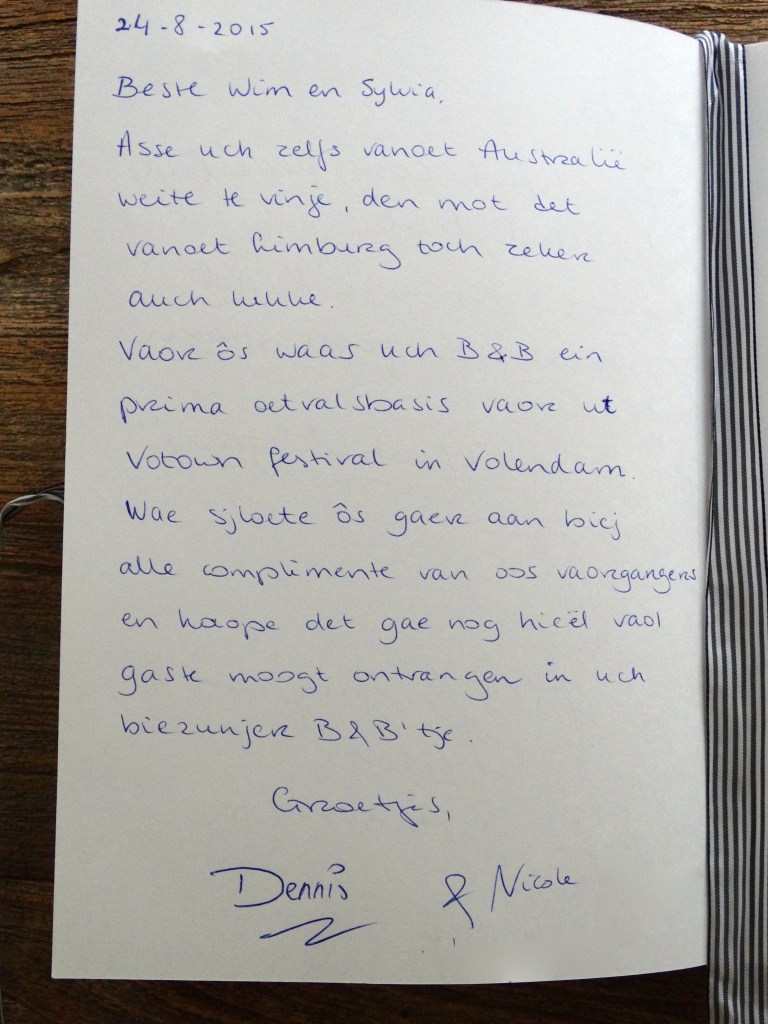 24-8-2015
Beste Wim en Sylvia,
Asse uch zelfs vanoet Australië
weite te vinje, den mot det
vanoet Limburg toch zeker
auch lukke.
Vaor ôs waas uch B&B ein
prima oetvalsbasis vaor ut
Votown festival in Volendam.
Wae sjloete ôs gaer aan biej
alle complimente van oos vaorgangers
en haope det gae nog hieël vaol
gaste moogt ontvangen in uch
biezunjer B&B'tje.
Groetjes,
Dennis & Nicole